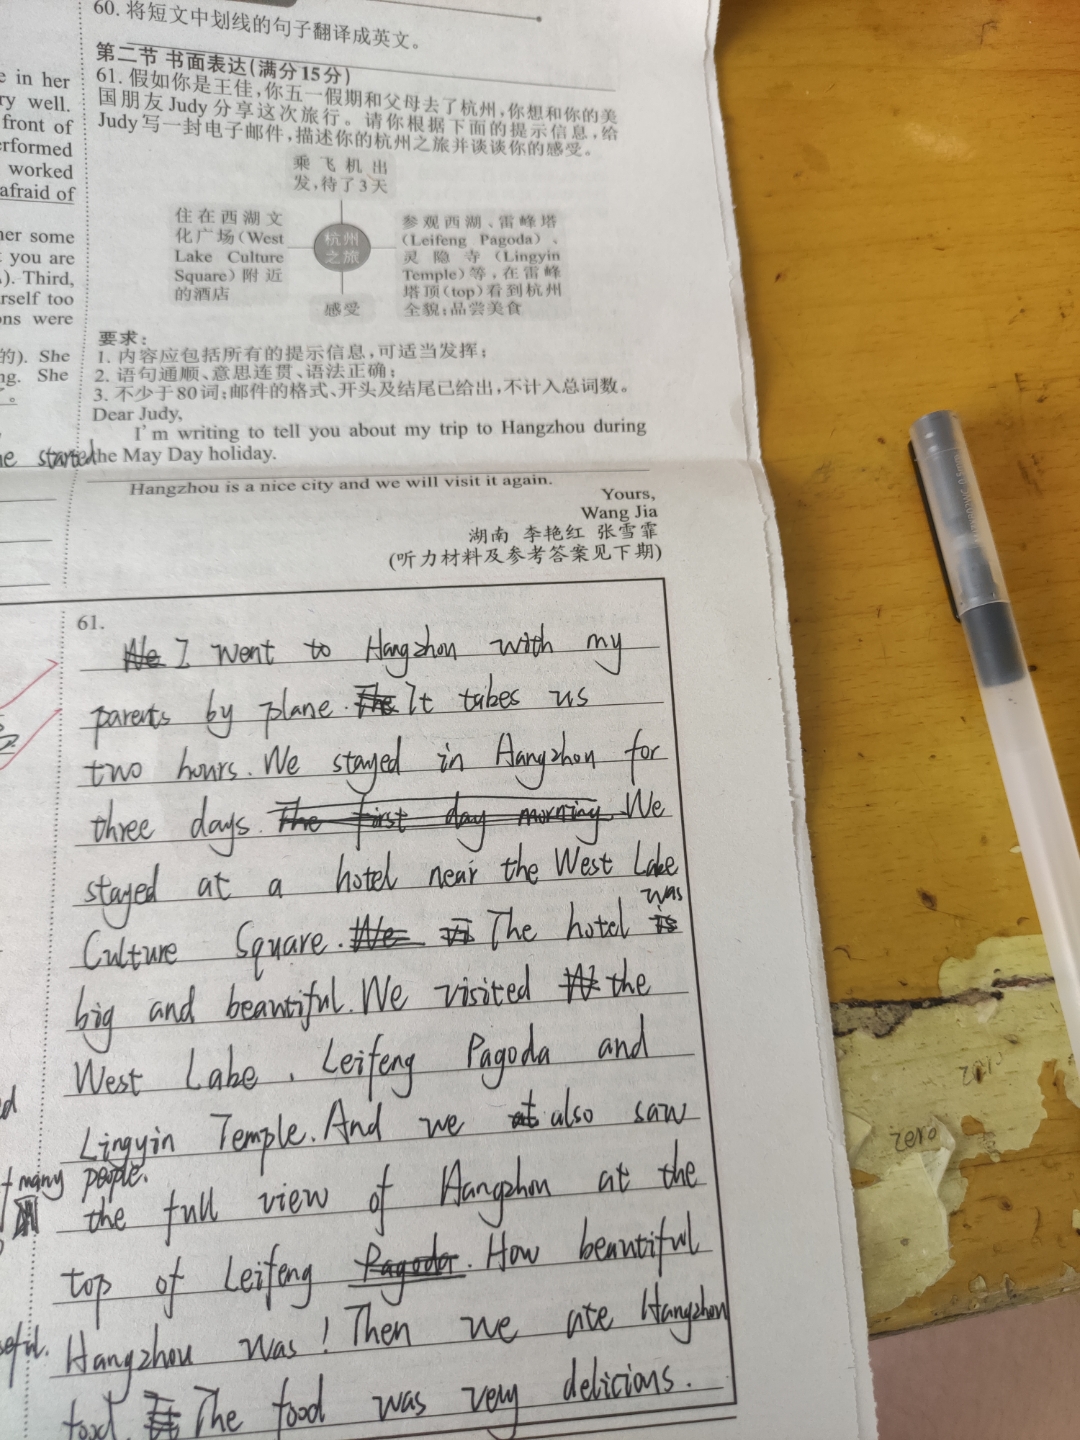 60. 将短文中划线的句子翻译成英文。
第二节 书面表达(满分15分)
61. 假如你是王佳,你五一假期和父母去了杭州,你想和你的美
国朋友Judy分享这次旅行。请你根据下面的提示信息,给
Judy写一封电子邮件,描述你的杭州之旅并谈谈你的感受。
乘飞机出
发,待了3天
住在西湖文
化广场(West
Lake Culture
Square)附近
的酒店
杭州
之旅
参观西湖、雷峰塔
(Leifeng Pagoda)、
灵隐寺(Lingyin
Temple)等,在雷峰
塔顶(top)看到杭州
全貌;品尝美食
感受
要求:
1. 内容应包括所有的提示信息,可适当发挥;
2. 语句通顺、意思连贯、语法正确;
3. 不少于80词;邮件的格式、开头及结尾已给出,不计入总词数。
Dear Judy,
I'm writing to tell you about my trip to Hangzhou during
the May Day holiday.
Hangzhou is a nice city and we will visit it again.
Yours,
Wang Jia
湖南 李艳红 张雪霏
(听力材料及参考答案见下期)
e in her
ry well.
front of
erformed
worked
afraid of
her some
t you are
). Third,
rself too
ons were
的). She
ng. She
he started
many people.
seful.
61.
We I went to Hangzhou with my
parents by plane. The It takes us
two hours. We stayed in Hangzhou for
three days. The first day morning We
stayed at a hotel near the West Lake
Culture Square. We vi The hotel is was
big and beautiful. We visited W the
West Lake, Leifeng Pagoda and
Lingyin Temple. And we at also saw
the full view of Hangzhou at the
top of Leifeng Pagoda. How beautiful
Hangzhou was! Then we ate Hangzhou
food. It The food was very delicious.
zero